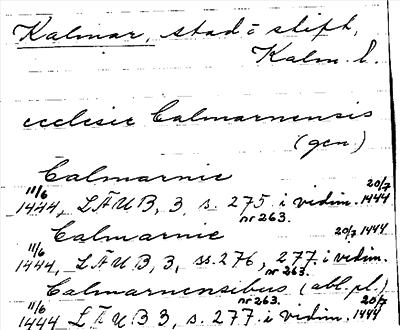 Kalmar, stad i stift,
Kalm. l.
ecclesie Calmarnensis
(gen.)
Calmarnie
11/6 1444, LÄUB, 3 s. 275 i vidim. 20/7 1444
nr 263.
Calmarnie 20/7 1444
11/6 1444, LÄUB, 3, ss. 276, 277 i vidim.
nr 263.
Calmarnensibus (abl. pl.)
nr 263. 20/7
11/6 1444 LÄUB 3, s. 277 i vidim. 1444